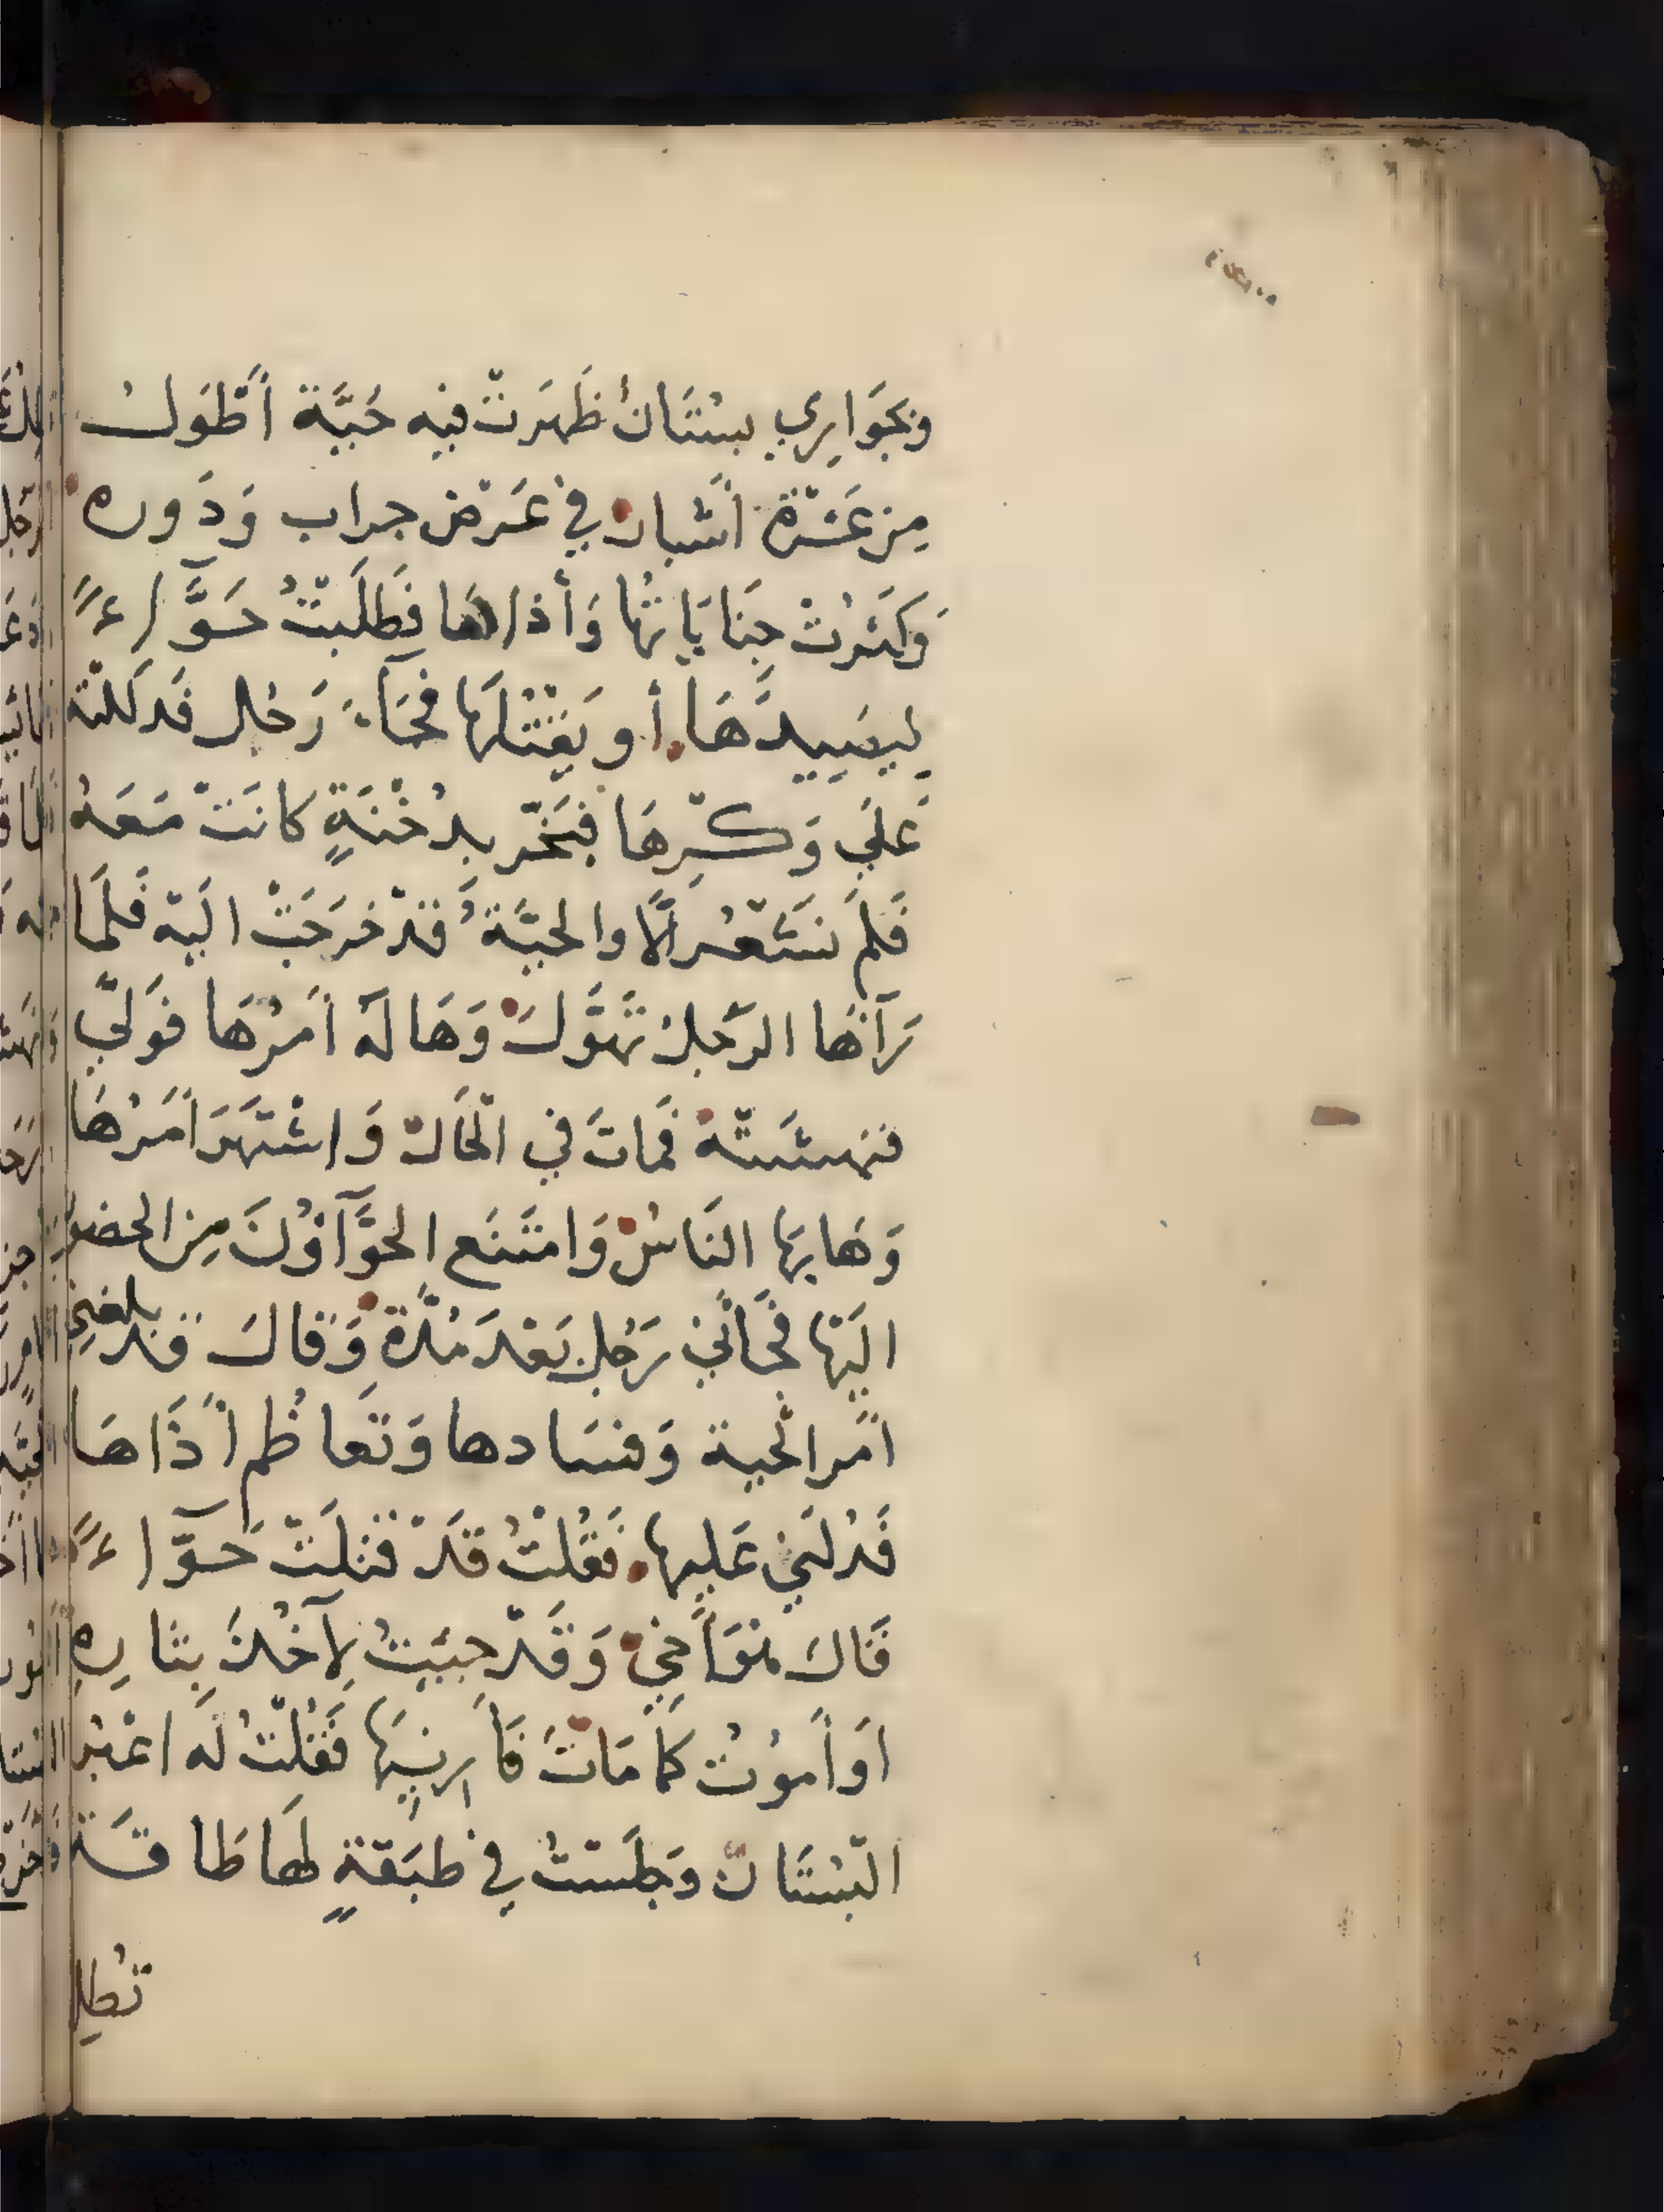 وبجَوَاري بسْتَانُ ظَهَرَتْ فيه حَيَّة أَطْوَلُ
مِن عَشرَة أَشبار في عَرْض جراب وَدَوره
وَكَثرتْ جِنَايَاتُها وَأذاها فَطَلَبْتُ حَوَّاءً
لِيَصِيدَهَا أو يَقْتُلَهَا فَجَآءَ رَجُل فَدَلَلْته
عَلَى وَكْرِهَا فَبَخَّر بدُخْنَةٍ كانَتْ مَعَهُ
فَلَم نَشْعُر إلَّا والحيَّةُ قَدْ خرَجَتْ الَيْه فَلَمَّا
رَآهَا الرَّجلُ تَهَوَّلَ وَهَالَه أَمْرُهَا فَوَلَّى
فنهشَتْهُ فَمَاتَ في الْحَال وَاشْتَهَرَ أَمْرُهَا
وَهَابهَا النَاسُ وَامتَنَع الحَوَّآؤُنَ مِن الحضور
الَيْهَا فَجَأَنِي رَجُل بَعْدَ مُدَّة وَقَالَ قَد بلغني
أَمر الحية وَفسَادها وَتَعَاظُم أَذَاهَا
فَدُلَّنِي عَليها فَقُلْتُ قَدْ قَتَلَتْ حَوَّاءً
قَالَ هُوَ أَخِي وَقَدْ جِئتُ لِآخُذَ بِثَارِهِ
اَو أَمُوتُ كَمَا مَاتَ فَأَرِنِيهَا فَقُلْتُ لَه اعْبُر
البُسْتَان وَجَلَسْتُ في طَبَقَةٍ لَهَا طَاقَة
تُطِل